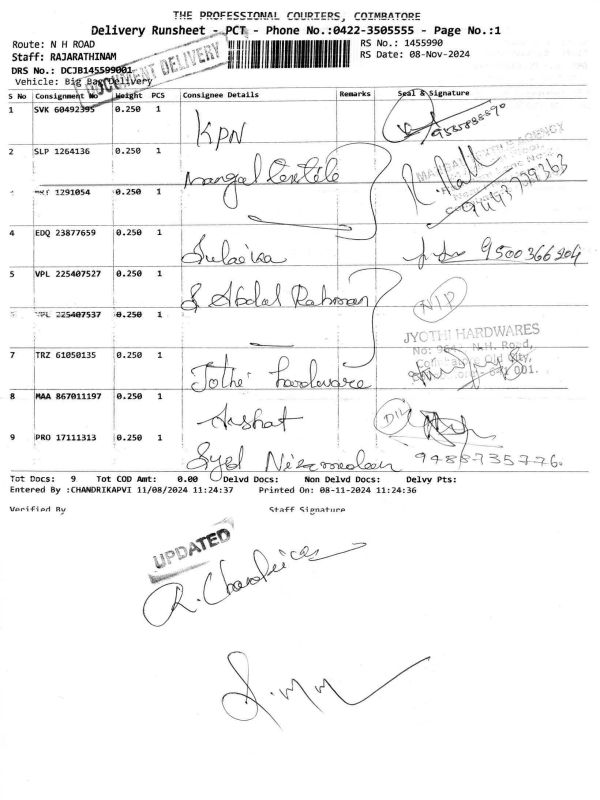 THE PROFESSIONAL COURIERS, COIMBATORE
Delivery Runsheet - PCT - Phone No.:0422-3505555 - Page No.:1
Route: N H ROAD RS No.: 1455990
Staff: RAJARATHINAM RS Date: 08-Nov-2024
DRS No.: DCJB145599001
DOCUMENT DELIVERY
Vehicle: Big Bag Delivery
S No Consignment No Weight PCS Consignee Details Remarks Seal & Signature
1 SVK 60492395 0.250 1 KPN
2 SLP 1264136 0.250 1 Mangal Textile
1291054 0.250 1 9493739363
4 EDQ 23877659 0.250 1 9500366904
5 VPL 225407527 0.250 1 S Abdul Rahman
VPL 225407537 0.250 1 N/P
JYOTHI HARDWARES
No: N.H. Road,
Old City,
641 001.
7 TRZ 61050135 0.250 1 Jothi hardware
8 MAA 867011197 0.250 1 Akshat D/L
9 PRO 17111313 0.250 1 Syed 9488735776.
Tot Docs: 9 Tot COD Amt: 0.00 Delvd Docs: Non Delvd Docs: Delvy Pts:
Entered By :CHANDRIKAPVI 11/08/2024 11:24:37 Printed On: 08-11-2024 11:24:36
Verified By Staff Signature
UPDATED